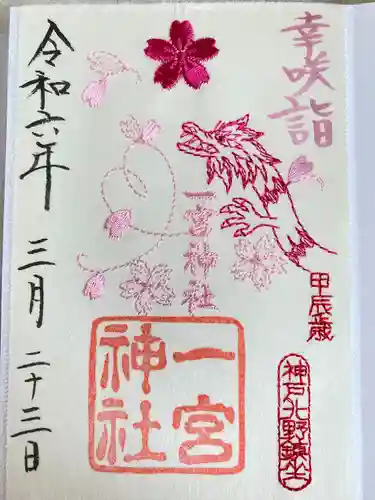 幸咲詣
甲辰歳
神戸北野鎮座
一宮神社
一宮
神社
令和六年 三月 二十三日